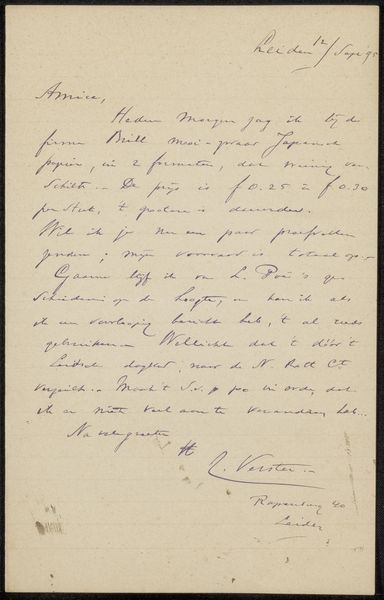 Leiden 12/Sept 95
Amice,
Heden Morgen zag ik bij de
firma Brill mooi-zwaar Japansch
papier, in 2 formaten, dat weinig van
De prijs is f 0.25 à f 0.30
per stuk, 't grootere is
Wil ik je nu een paar proefvellen
zenden; mijn voorraad is totaal op.-
Gaarne blijf ik van L. Poë's
op de hoogte, en kan ik als
ik een voorloopig bericht heb, 't al reeds
gebruiken. Wellicht dat 't dóór 't
Leidsch dagblad, naar de N. Rott Ct
in orde, dat
ik er niet veel aan te veranderen heb.
Na vele groeten
tt
Verster.-
Rapenburg 40
Leiden